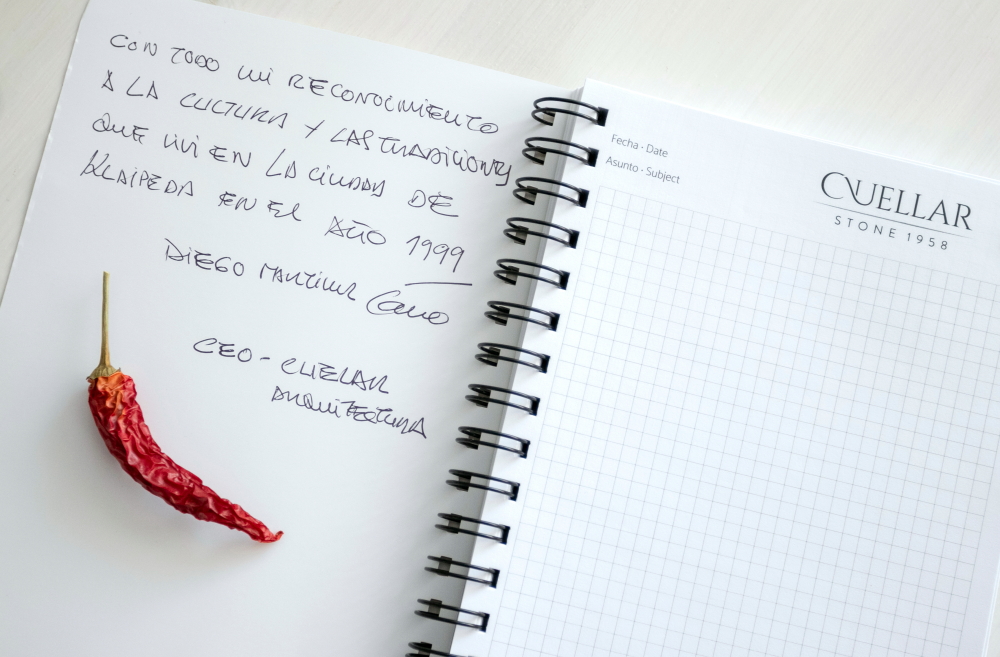 CON TODO MI RECONOCIMIENTO
A LA CULTURA Y LAS TRADICIONES
QUE VIVI EN LA CIUDAD DE
KLAIPEDA EN EL AÑO 1999
DIEGO MARTINEZ Cano
CEO - CUELLAR
ARQUITECTURA
Fecha - Date
Asunto - Subject
CUELLAR
STONE 1958